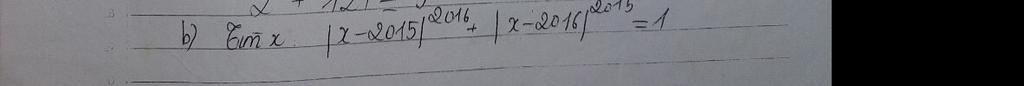 b) Tìm x. |x-2015|^2016 + |x-2016|^2015 = 1